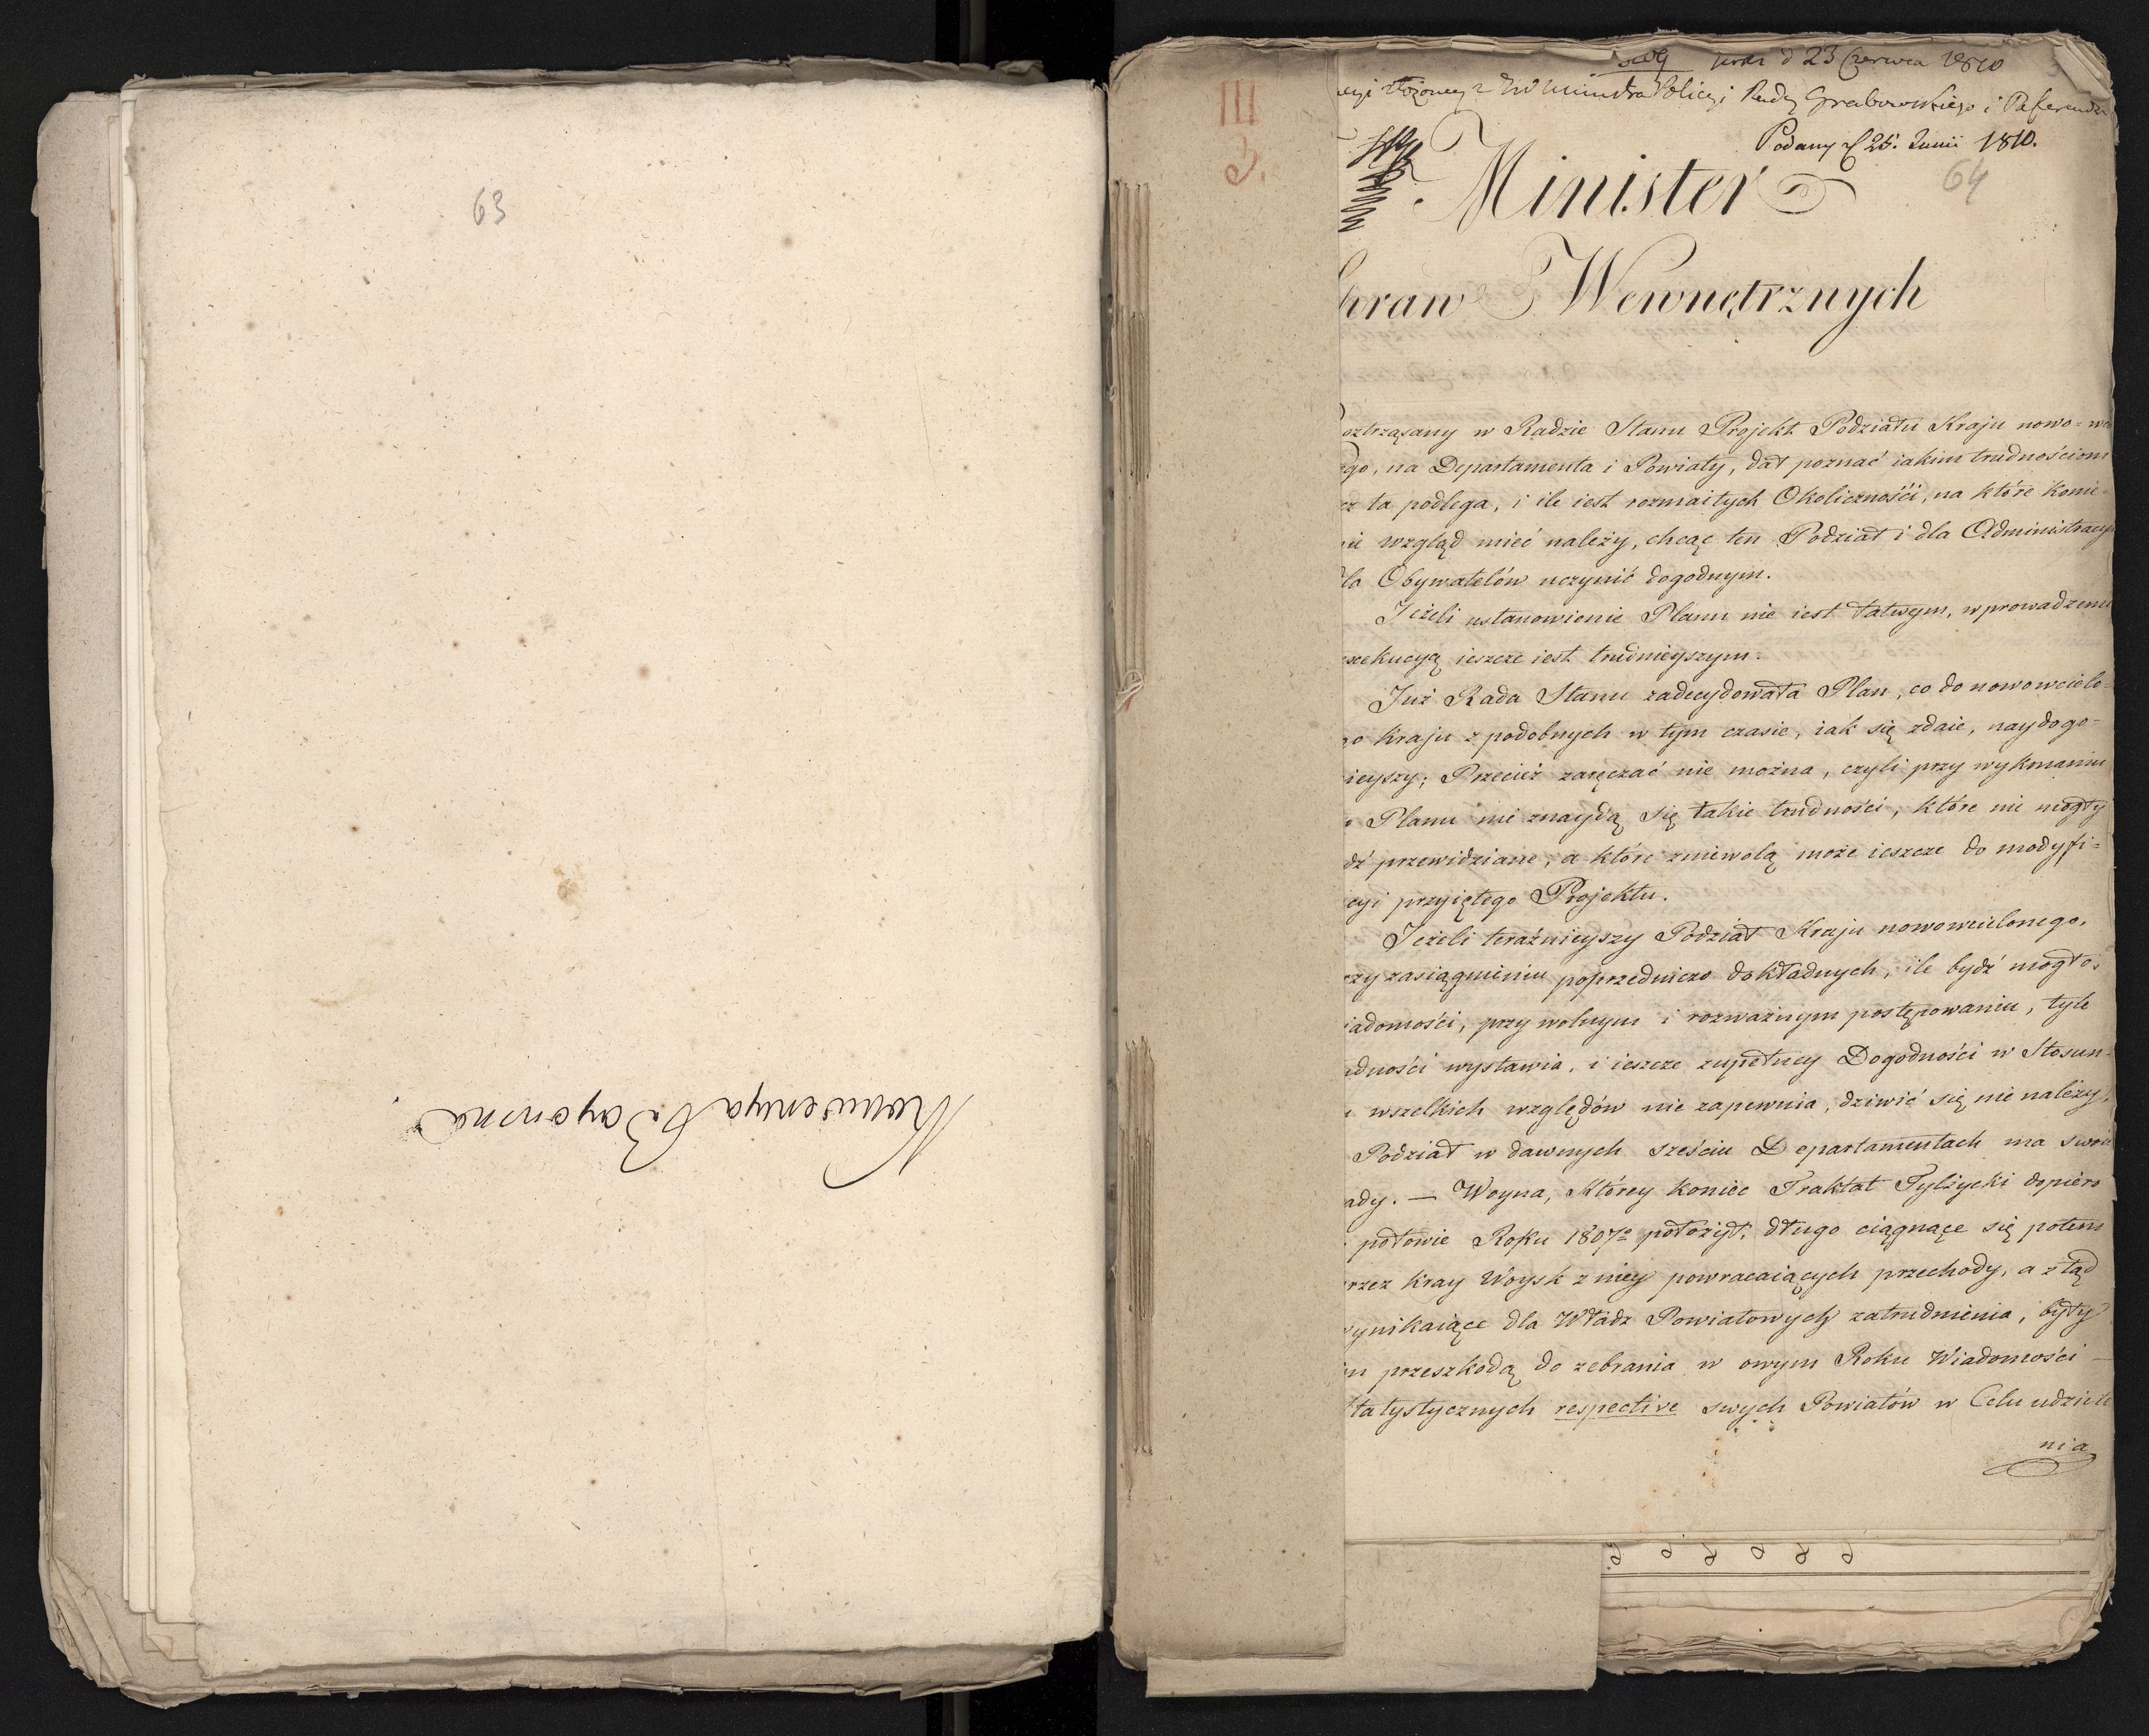 63
Konwencya Bayonska.
III
kraz d 23 Czerwca 1810
złożoney z JW Ministra Policyi Radcy Grabowskiego i Referend
Podany d 25. Junii 1810.
64
Minister
praw Wewnętrznych
oztrząsany w Radzie Stanu Projekt Podziału Kraju nowo-wc
ego, na Departamenta i Powiaty, dał poznać iakim trudnościom
cz ta podlega, i ile iest rozmaitych Okoliczności, na które konie-
ie wzgląd mieć należy, chcąc ten Podział i dla Administracyi
la Obywatelów uczynić dogodnym.
Jeżeli ustanowienie Planu nie iest łatwym, wprowadzenie
exekucyą ieszcze iest trudnieyszym.
Już Rada Stanu zadecydowała Plan, co do nowowcielo-
go kraju z podobnych w tym czasie, iak się zdaie, naydogo-
ieyszy; Przecież zaręczać nie można, czyli przy wykonaniu
o Planu nie znaydą się takie trudności, które nie mogły
dź przewidziane, a które zniewolą może ieszcze do modyfi-
cyi przyiętego Projektu.
Jeżeli teraźnieyszy Podział Kraju nowowcielonego,
rzy zasiągnieniu poprzedniczo dokładnych, ile bydź mogło,
iadomości, przy wolnym i rozważnym postępowaniu, tyle
udności wystawia, i ieszcze zupełney Dogodności w Stosun-
u wszelkich względów nie zapewnia, dziwić się nie należy,
Podział w dawnych sześciu Departamentach ma swoie
ady. — Woyna, którey koniec Traktat Tylżycki dopiéro
połowie Roku 1807o położył, długo ciągnące się potem
rzez kray Woysk z niey powracaiących przechody, a ztąd
ynikaiące dla Władz Powiatowych zatrudnienia, były
m przeszkodą do zebrania w owym Roku Wiadomości —
tatystycznych respective swych Powiatów w Celu udziele
nia